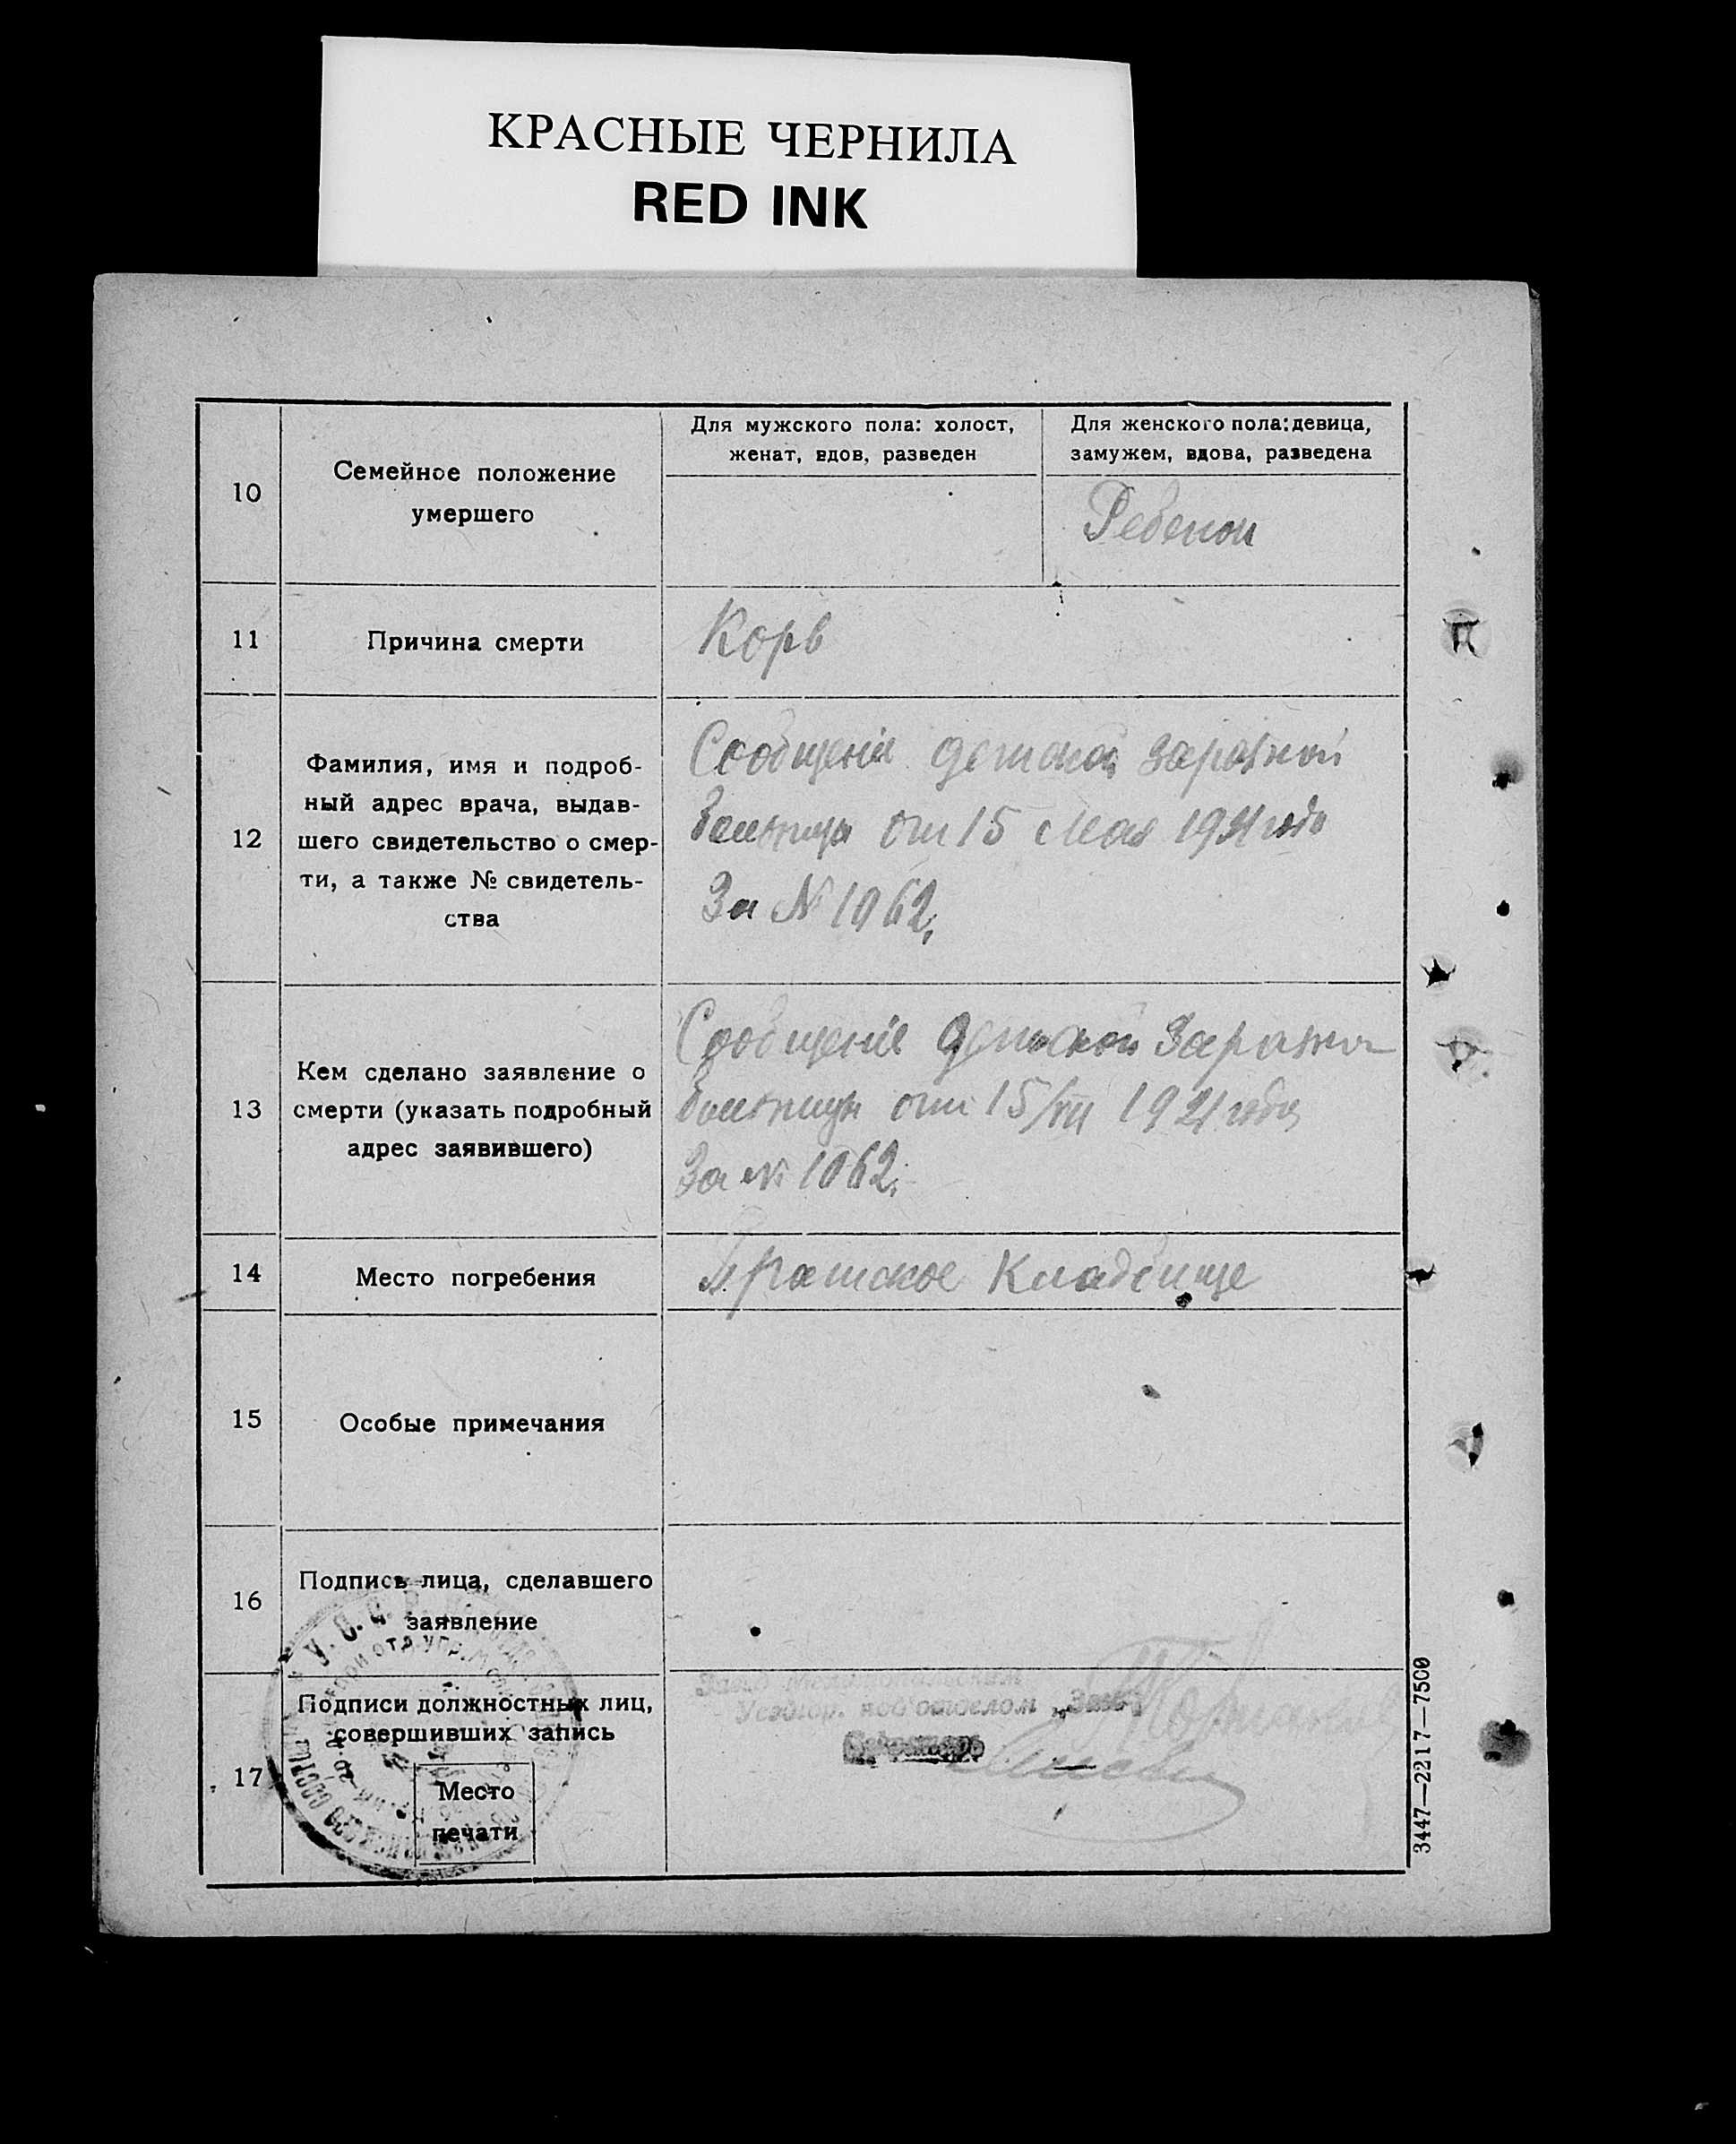 КРАСНЫЕ ЧЕРНИЛА
RED INK
10
Семейное положение
умершего
Для мужского пола: холост,
женат, вдов, разведен
Для женского пола: девица,
замужем, вдова, разведена
Ребенок
11
Причина смерти
Корь
12
Фамилия, имя и подроб-
ный адрес врача, выдав-
шего свидетельство о смер-
ти, а также № свидетель-
ства
Сообщение детской заразной
больницы от 15 Мая 1921 года
За № 1062.
13
Кем сделано заявление о
смерти (указать подробный
адрес заявившего)
Сообщение детской Заразно
больницы от 15/VII 1921 года
За № 1062.
14
Место погребения
Братское Кладбище
15
Особые примечания
16
Подпись лица, сделавшего
заявление
17
Подписи должностных лиц,
совершивших запись
Место
печати
У. С. С. Р.
3447—2217—7500